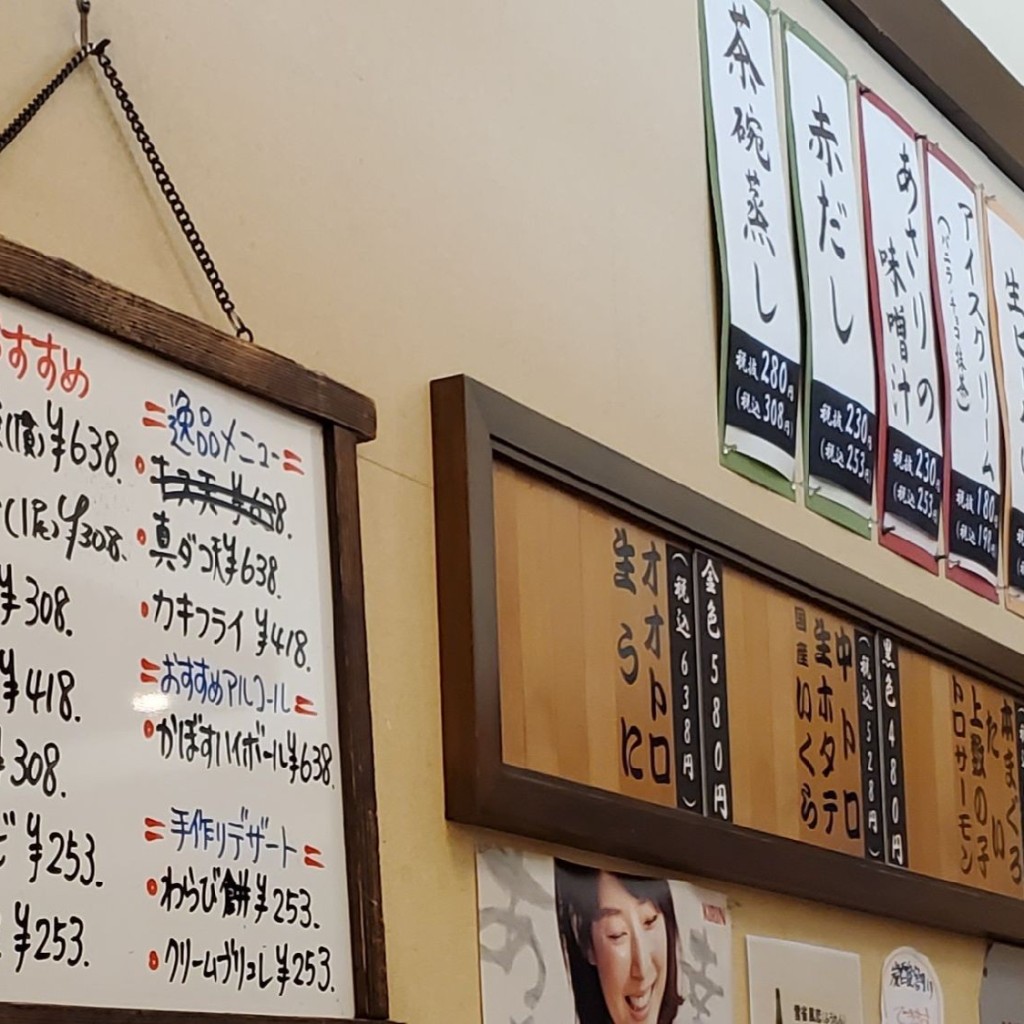 おすすめ
¥638.
(1尾)¥308.
¥308.
¥418.
¥308.
¥253.
¥253.
逸品メニュー
キス天¥638.
真ダコ天¥638.
カキフライ ¥418.
おすすめアルコール
かぼすハイボール¥638.
手作りデザート
わらび餅¥253.
クリームブリュレ¥253.
茶碗蒸し
税抜280円
(税込308円)
赤だし
税抜230円
(税込253円)
あさりの
味噌汁
税抜230
(税込253
アイスクリーム
(バニラ・チョコ・抹茶)
税抜180
(税込198
生ビ
本まぐろ
たい
上数の子
トロサーモン
黒色480円
(税込528円)
中トロ
生ホタテ
国産いくら
金色580円
(税込638円)
オオトロ
生うに
KIRIN